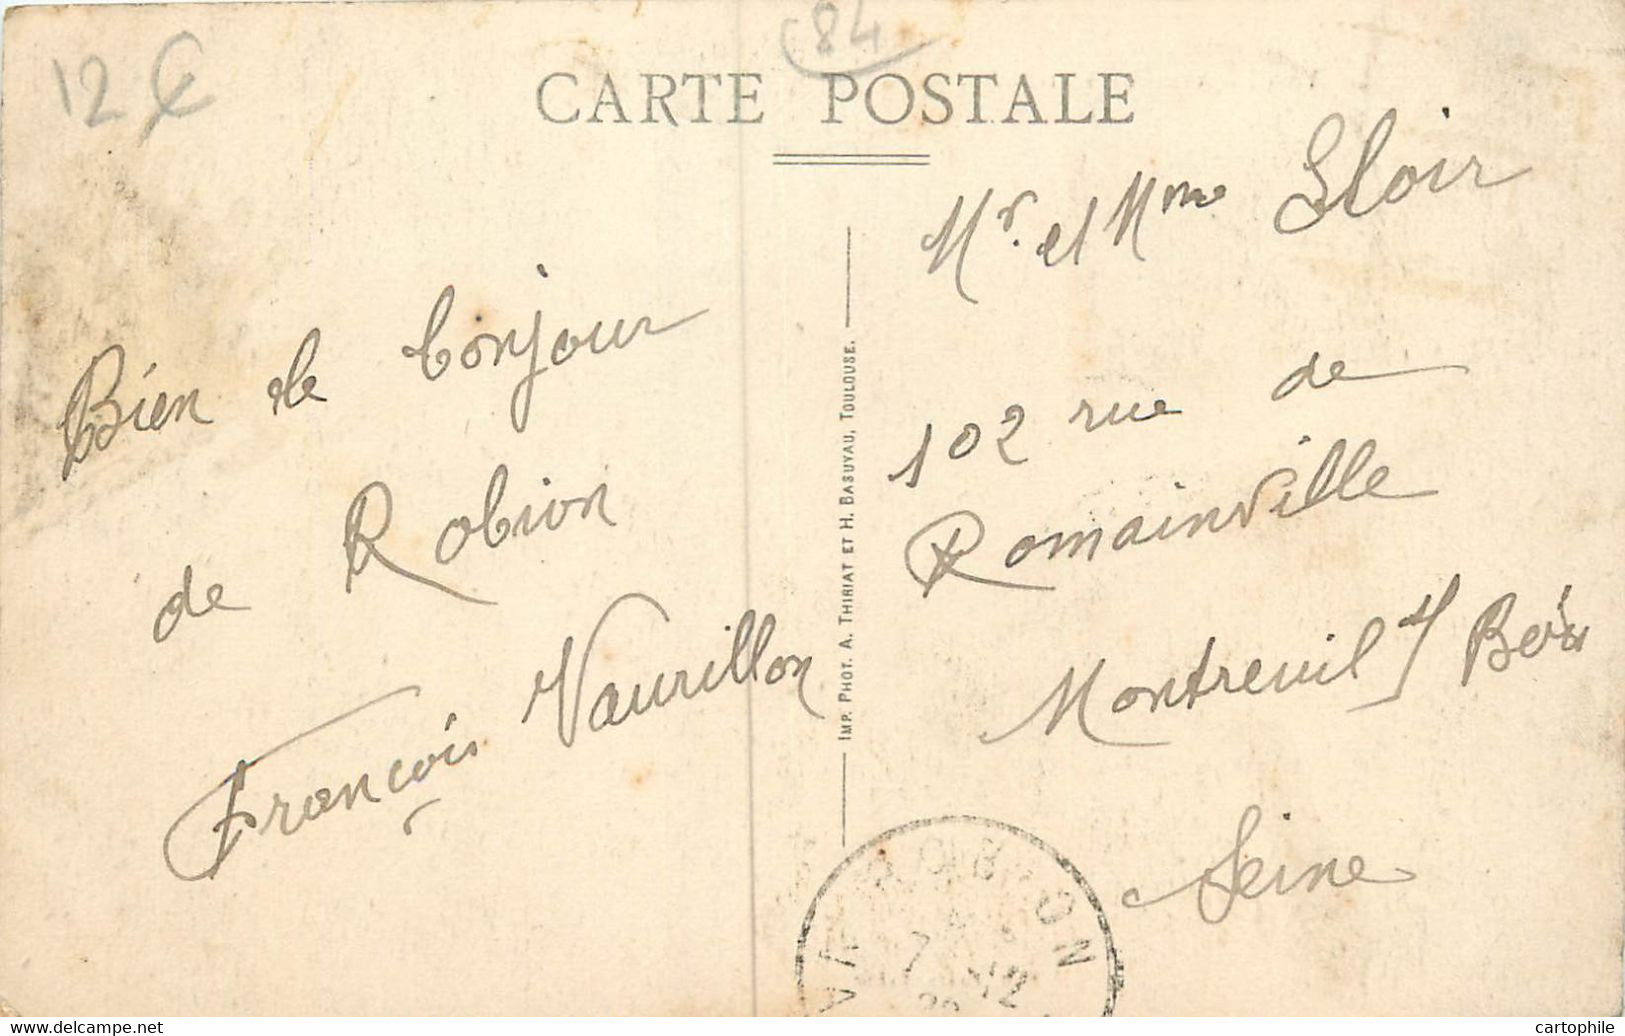 12 €
84
CARTE POSTALE
Bien le bonjour
de Robion
François Vaurillon
IMP. PHOT. A. THIRIAT ET H. BASUYAU, TOULOUSE.
Mr. et Mme Sloir
102 rue de
Romainville
Montreuil s/ Bois
Seine
ROBION
7 12
www.delcampe.net
cartophile